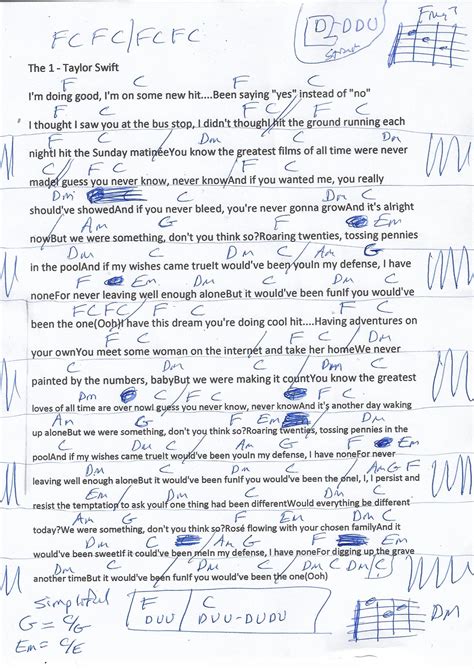 FCFC/FCFC
D DDU
The 1 - Taylor Swift
F C F C
I'm doing good, I'm on some new hit....Been saying "yes" instead of "no"
F C F C
I thought I saw you at the bus stop, I didn't thoughI hit the ground running each
Dm C Dm
nightI hit the Sunday matineeYou know the greatest films of all time were never
C F F C F C
madeI guess you never know, never knowAnd if you wanted me, you really
Dm C Dm C
should've showedAnd if you never bleed, you're never gonna growAnd it's alright
F Em
nowBut we were something, don't you think so?Roaring twenties, tossing pennies
Dm C Dm Am G
in the poolAnd if my wishes came trueIt would've been youIn my defense, I have
F Em Dm C
noneFor never leaving well enough aloneBut it would've been funIf you would've
FC/FC F C F C
been the one(Ooh)I have this dream you're doing cool hit....Having adventures on
F C F C
your ownYou meet some woman on the internet and take her homeWe never
Dm C Dm C
painted by the numbers, babyBut we were making it countYou know the greatest
Dm C F C
loves of all time are over nowI guess you never know, never knowAnd it's another day waking
Am G F Em Dm
up aloneBut we were something, don't you think so?Roaring twenties, tossing pennies in the
C Dm C Am G F Em
poolAnd if my wishes came trueIt would've been youIn my defense, I have noneFor never
Dm C Dm C Am G F
leaving well enough aloneBut it would've been funIf you would've been the oneI, I, I persist and
Em Dm C
resist the temptation to ask youIf one thing had been differentWould everything be different
Am G F Em Dm C
today?We were something, don't you think so?Rosé flowing with your chosen familyAnd it
Dm C Am G F Em
would've been sweetIf it could've been meIn my defense, I have noneFor digging up the grave
Dm C Dm C Dm C
another timeBut it would've been funIf you would've been the one(Ooh)
F C
DUU DUU-DUDU
G = C/G
Em = C/E
DM